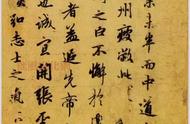 未半而中道
州疲敝此
之臣不懈於
者蓋追先帝
也誠宜開張聖
志士之氣